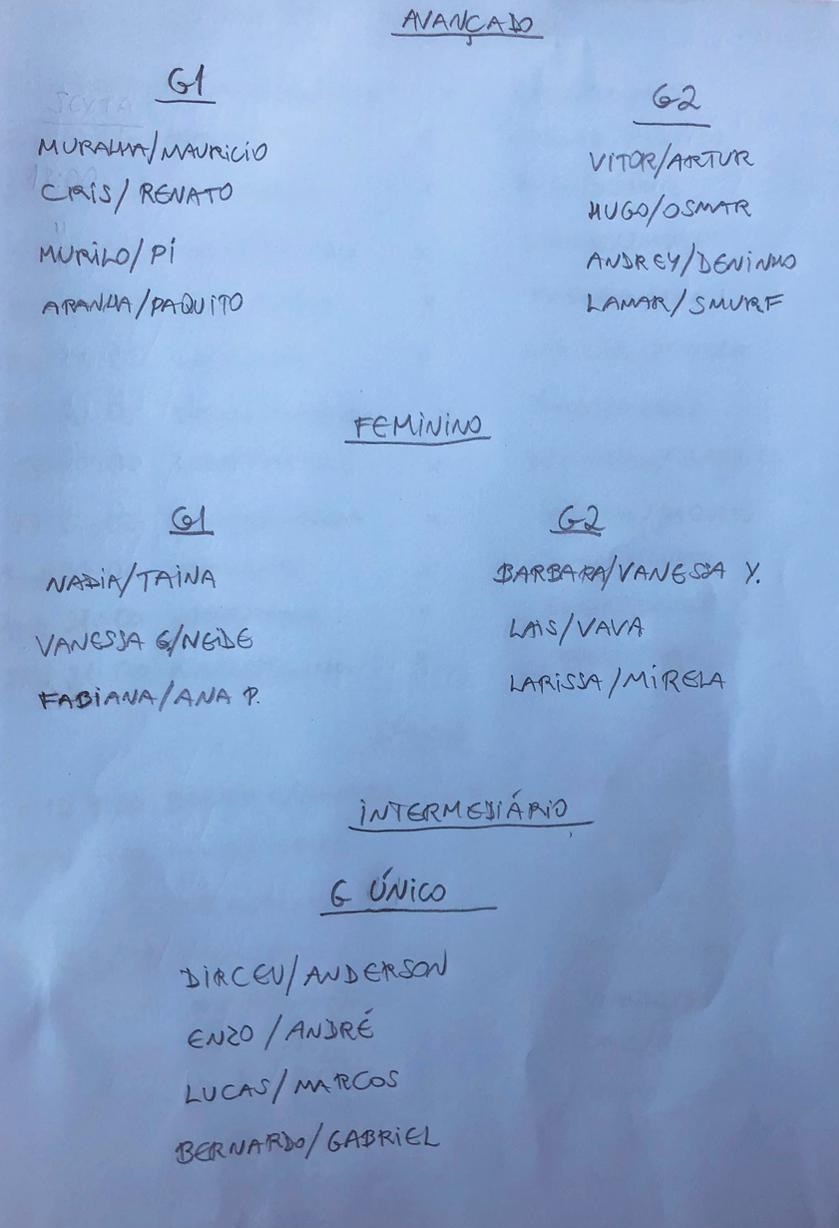 AVANÇADO
G1
MURALHA/MAURICIO
CRIS/RENATO
MURILO/PÍ
ARANHA/PAQUITO
G2
VITOR/ARTUR
HUGO/OSMAR
ANDREY/DENINHO
LAMAR/SMURF
FEMININO
G1
NADIA/TAINA
VANESSA G/NEIDE
FABIANA/ANA P.
G2
BARBARA/VANESSA Y.
LAIS/VAVA
LARISSA/MIRELA
INTERMEDIÁRIO
G ÚNICO
DIRCEU/ANDERSON
ENZO/ANDRÉ
LUCAS/MARCOS
BERNARDO/GABRIEL